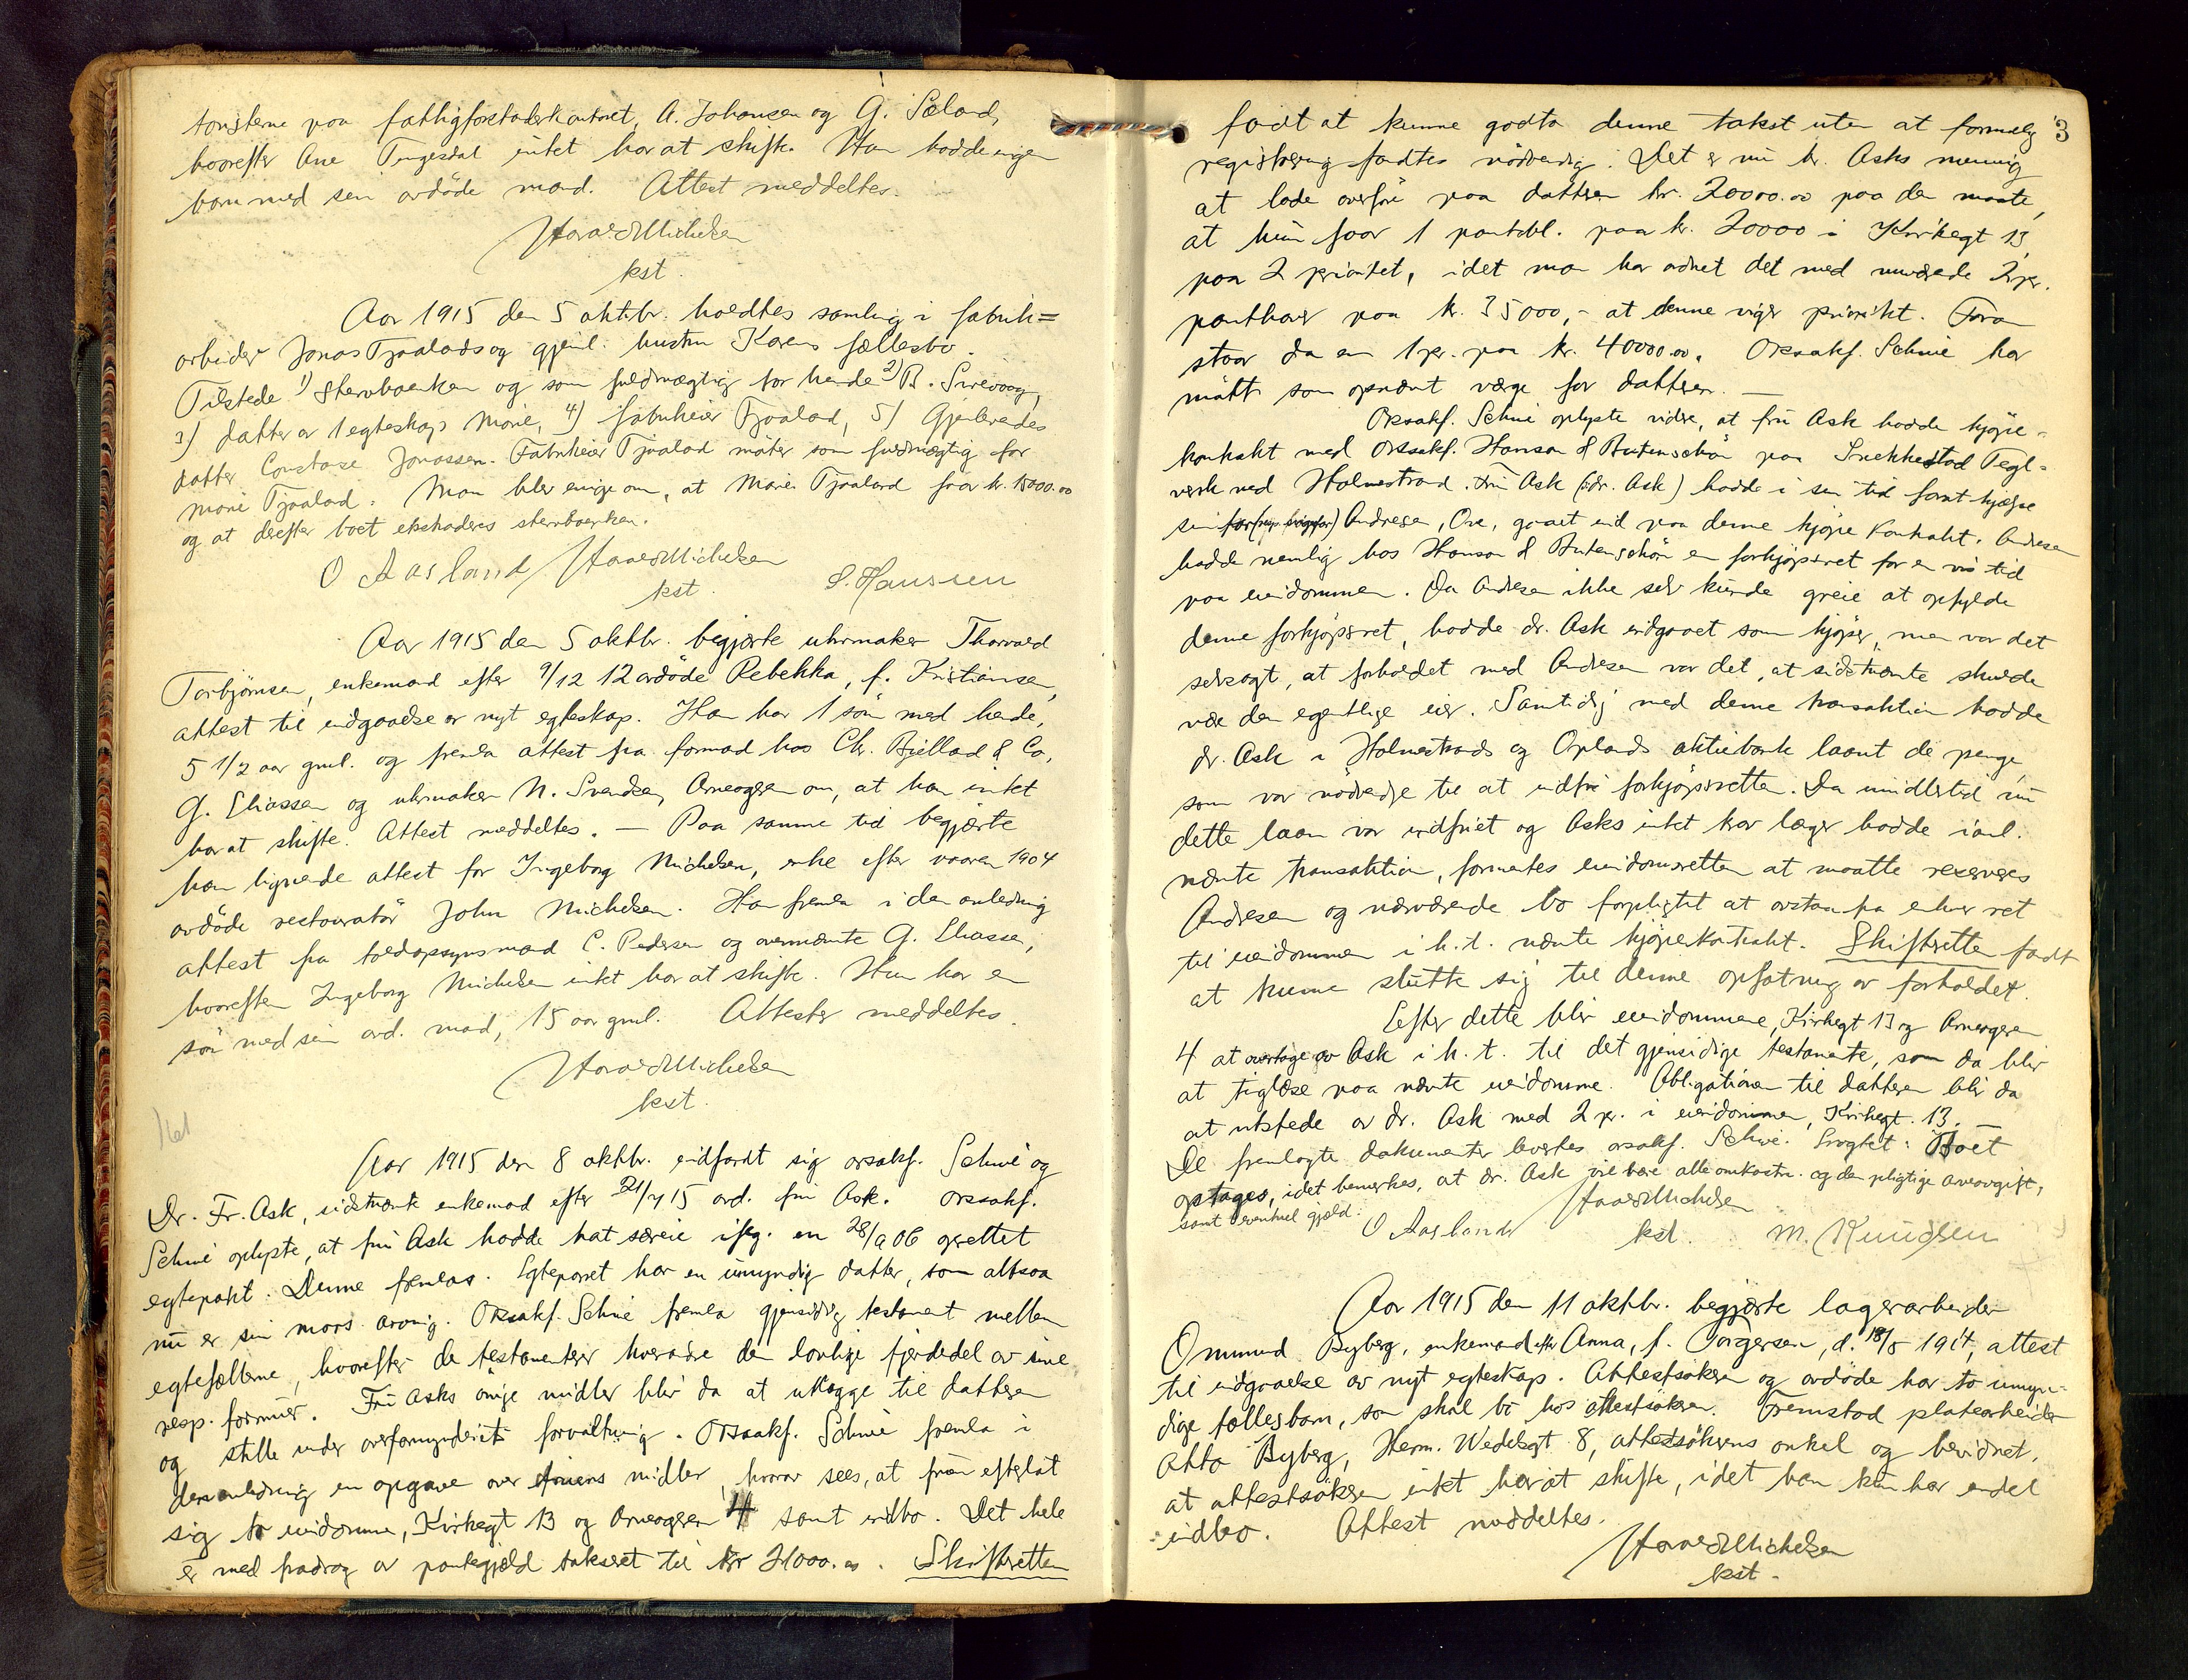 torsterne paa fattigforstanderkontoret, A. Johansen og G. Sæland,
hvorefter Ane Tengesdal intet har at skifte. Han hadde ingen
barn med sin avdöde mand. Attest meddeltes.
Harald Michelsen
kst.
Aar 1915 den 5 oktbr. holdtes samling i fabrik=
arbeider Jonas Tjaalands og gjenl. hustru Karens fællesbo.
Tilstede 1) Stervboenken og som fuldmægtig for hende 2) B.
3) datter av 1 egteskap Marie, 4) fabrikeier Tjaaland, 5) Gjenlevendes
datter Constanse Jonassen. Fabrikeier Tjaaland möter som fuldmægtig for
Marie Tjaaland. Man blev enige om, at Marie Tjaaland faar kr. 15000.00
og at derefter boet ekstraderes stervboenken.
O Aasland Harald Michelsen
kst. S. Hanssen
Aar 1915 den 5 oktbr. begjærte uhrmaker Thorvald
Torbjörnsen, enkemand efter 9/12 12 avdöde Rebekka, f. Kristiansen,
attest til indgaaelse av nyt egteskap. Han har 1 sön med hende,
5 1/2 aar gml. og fremla attest fra formand hos Chr. Bjelland & Co,
G. Eliassen og uhrmaker N. Svendsen, Arneageren om, at han intet
har at skifte. Attest meddeltes. — Paa samme tid begjærte
han lignende attest for Ingeborg Michelsen, enke efter vaaren 1904
avdöde restauratör John Michelsen. Han fremla i den anledning
attest fra toldopsynsmand C. Pedersen og ovennævnte G. Eliassen,
hvorefter Ingeborg Michelsen intet har at skifte. Hun har en
sön med sin avd. mand, 15 aar gml. Attester meddeltes.
Harald Michelsen
kst.
Aar 1915 den 8 oktbr. indfandt sig orsakf. Schwie og
Dr. Fr. Ask, sidstnævnte enkemand efter 21/7 15 avd. fru Ask. Orsakf.
Schwie oplyste, at fru Ask hadde hat særeie ifg. en 28/9 06 oprettet
egtepakt. Denne fremlas. Egteparret har en umyndig datter, som altsaa
nu er sin mors arving. Orsakf. Schwie fremla gjensidig testament mellem
egtefællerne, hvorefter de testamenterer hverandre den lovlige fjerdedel av sine
resp. formuer. Fru Asks övrige midler blir da at utlægge til datteren
og stille under overformynderiets forvaltning. Orsakf. Schwie fremla i
den anledning en opgave over fruens midler, hvorav sees, at fruen efterlot
sig to eiendomme, Kirkegt 13 og Arneageren 4 samt indbo. Det hele
er med fradrag av pantegjæld takseret til kr 21000.00. Skifteretten
3
fandt at kunne godta denne takst uten at formelig
registrering fandtes nödvendig. Det er nu hr. Asks mening
at lade overföre paa datteren kr. 20000.00 paa den maate,
at hun faar 1 pantobl. paa kr. 20000 i Kirkegt 13
paa 2 prioritet, idet man har ordnet det med nuværende 2 pr.
panthaver paa kr. 35000,- at denne viger prioritet. Foran
staar da en 1 pr. paa kr. 40000.00. Orsakf. Schwie har
mött som opnævnt værge for datteren. —
Orsakf. Schwie oplyste videre, at fru Ask hadde kjöpe-
kontrakt med Orsakf. Hanson & Butenschön paa Snekkestad Tegl-
verk ved Holmestrand. Fru Ask (: dr. Ask) hadde i sin tid for at hjælpe
sin Andresen, Ove, gaaet ind paa denne kjöpekontrakt. Andresen
hadde nemlig hos Hanson & Butenschön en forkjöpsret for en vis tid
paa eiendommen. Da Andresen ikke selv kunde greie at opfylde
denne forkjöpsret, hadde dr. Ask indgaaet som kjöper, men var det
selvsagt, at forholdet med Andresen var det, at sidstnævnte skulde
være den egentlige eier. Samtidig med denne transaktion hadde
dr. Ask i Holmestrands og Oplands aktiebank laant de penge,
som var nödvendige til at indfri forkjöpsretten. Da imidlertid nu
dette laan var indfriet og Asks intet krav længer hadde i anl.
nævnte transaktion, formentes eiendomsretten at maatte reserveres
Andresen og nærværende bo forpligtet at avstaa fra enhver ret
til eiendommen i h.t. nævnte kjöpekontrakt. Skifteretten fandt
at kunne slutte sig til denne opfatning av forholdet.
Efter dette blir eiendommene, Kirkegt 13 og Arneageren
4 at overtage av Ask i h.t. til det gjensidige testamente, som da blir
at tinglæse paa nævnte eiendomme. Obligationen til datteren blir da
at utstede av dr. Ask med 2 pr. i eiendommen, Kirkegt. 13. —
De fremlagte dokumenter leveres orsakf. Schwie. Boet
optages, idet bemerkes, at dr. Ask vil bære alle omkostn. og den pligtige arveavgift,
samt eventuel gjæld.
Harald Michelsen
O Aasland kst. M. Knudsen
Aar 1915 den 11 oktbr. begjærte lagerarbeider
Ommund Byberg, enkemand efter Anna, f. Torgersen, d. 18/5 1914, attest
til indgaaelse av nyt egteskap. Attestsökeren og avdöde har to umyn-
dige fællesbarn, som skal bo hos attestsökeren. Fremstod platearbeider
Otto Byberg, Herm. Wedelsgt 8, attestsökerens onkel og bevidnet,
at attestsökeren intet har at skifte, idet han kun har endel
indbo. Attest meddeltes.
Harald Michelsen
kst.